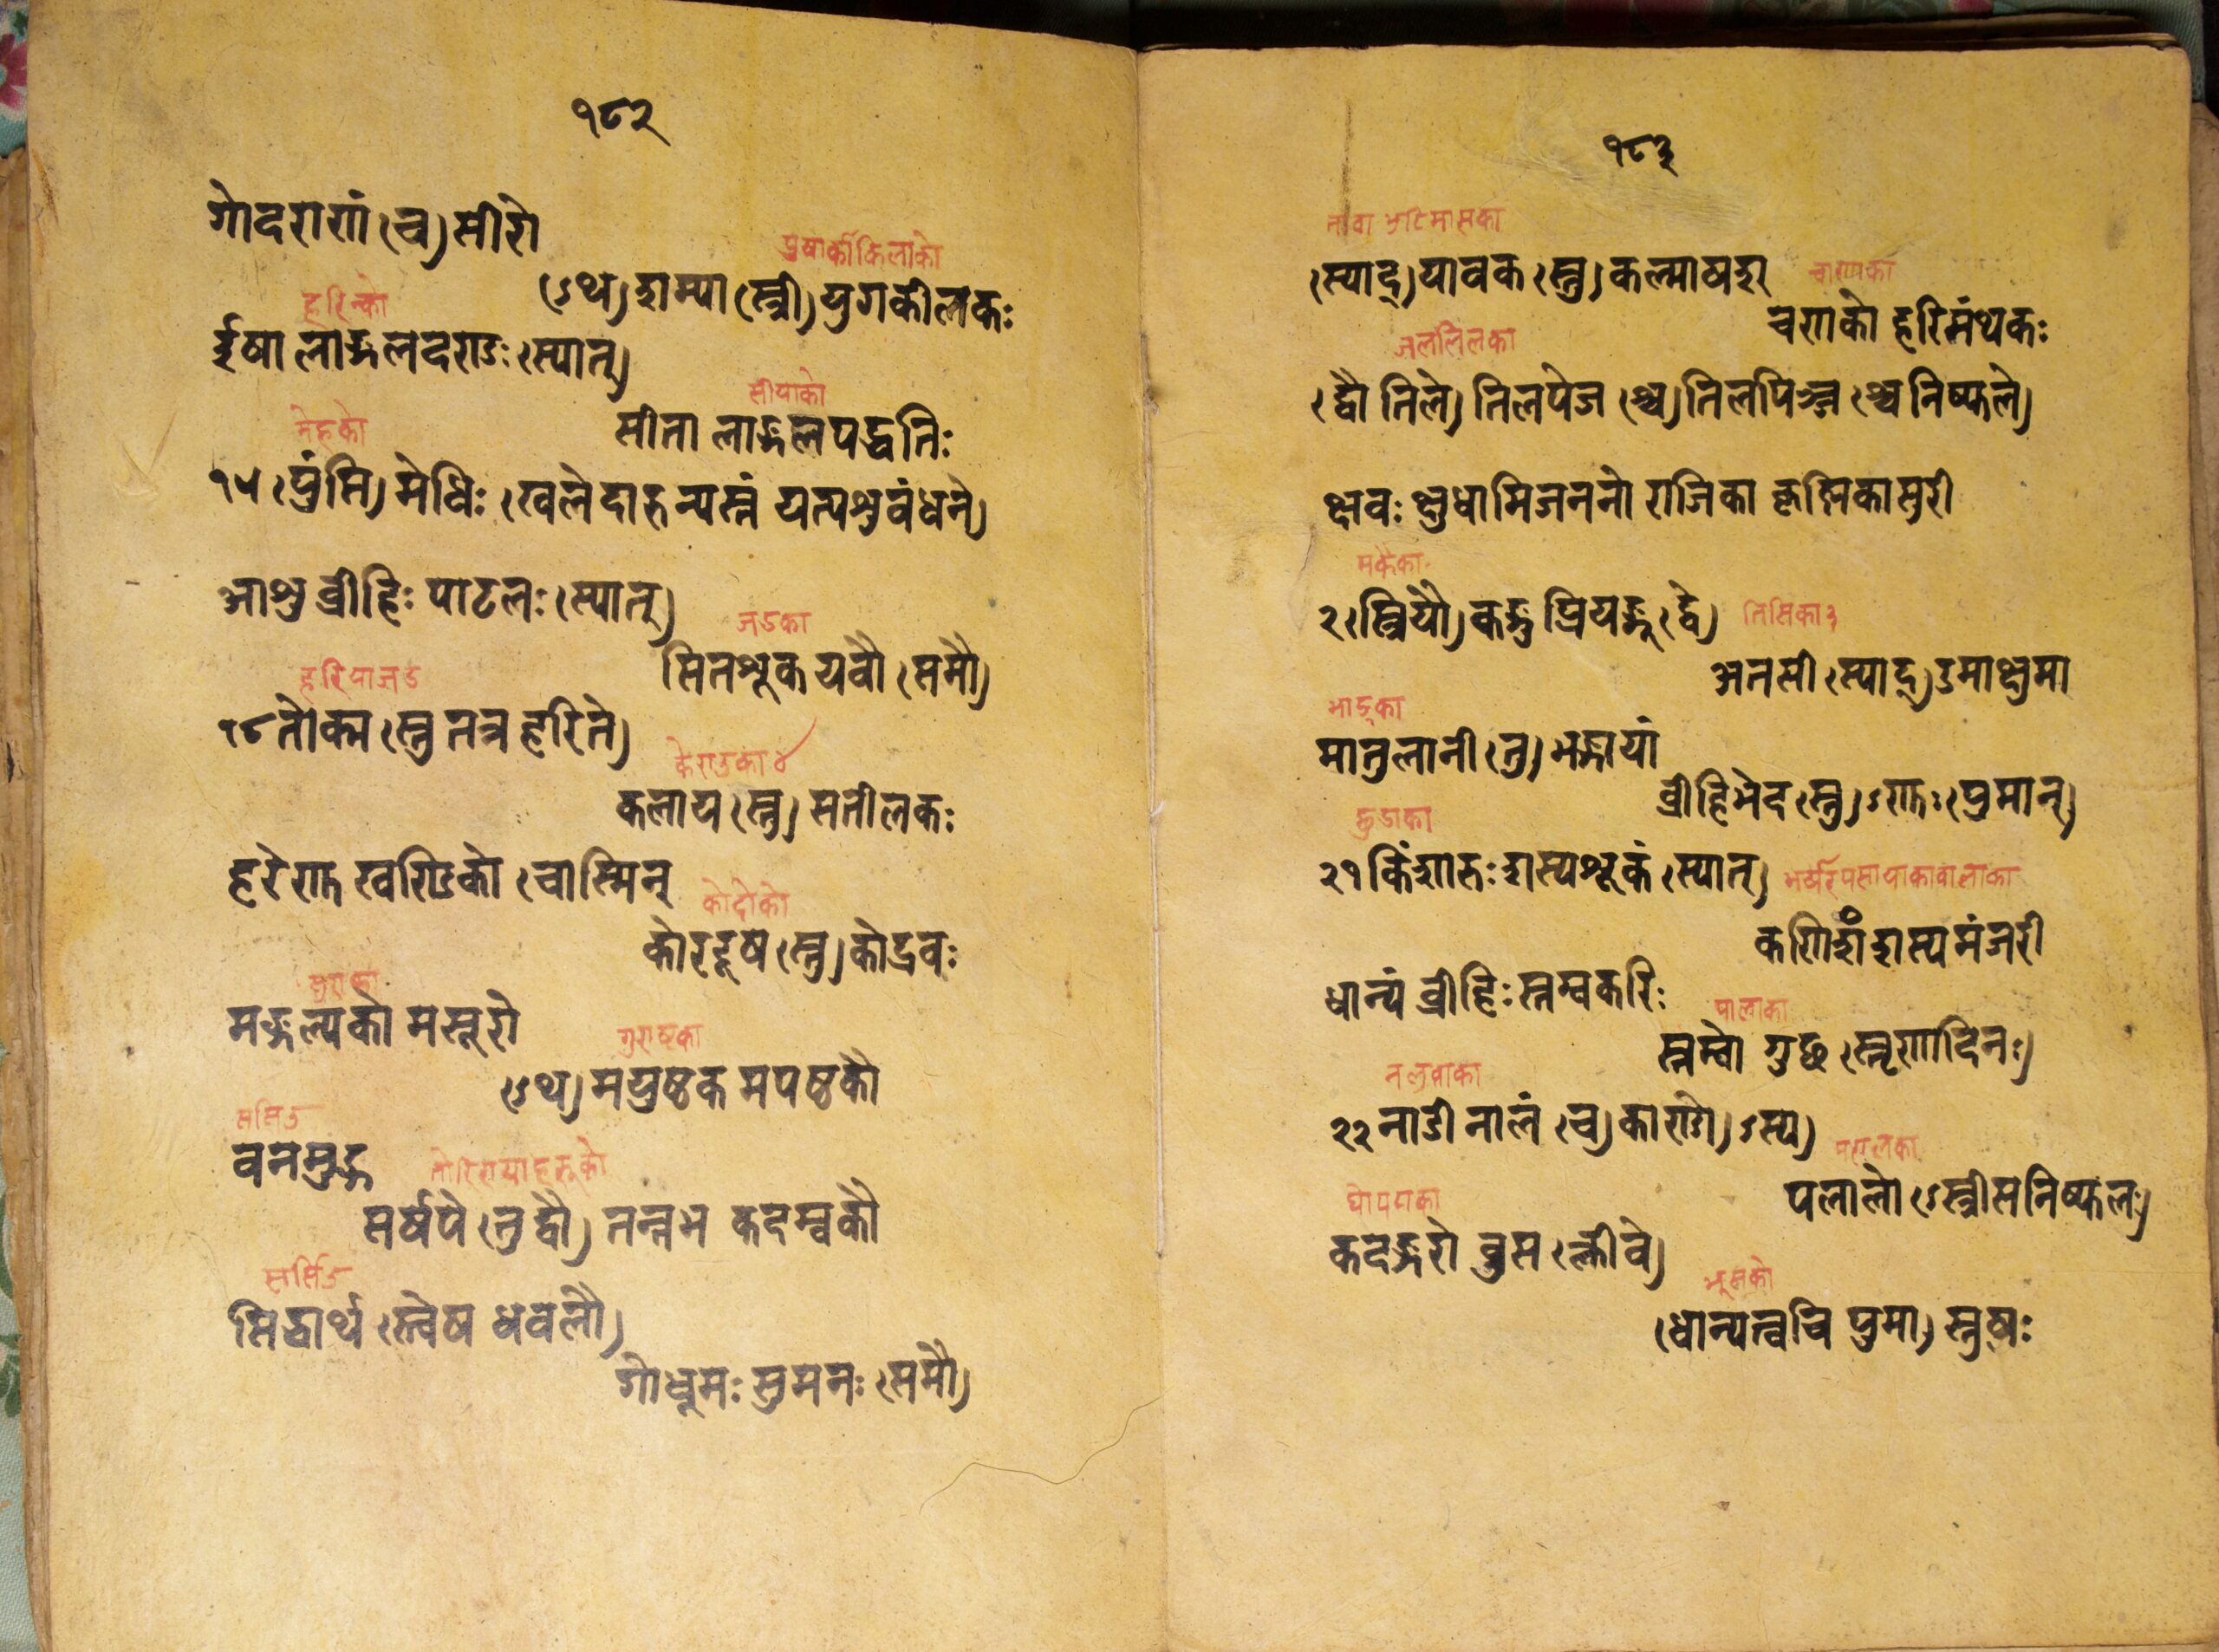 १८२
गोदारणं (च) सीरो
पुषाकीकिलाको
(ऽथ) शम्या (स्त्री) युगकीलकः
हरिन्को
ईषा लाङ्गलदण्डः (स्यात्)
सीयाको
सीता लाङ्गलपद्धतिः
मेहको
१५ (पुंसि) मेधिः (खलेदारुन्यस्तं यत्पशुबंधने)
आशु व्रीहिः पाटलः (स्यात्)
जडका
सितशूक यवौ (समौ)
हरियाजड
१८ तोक्म (स्तु तत्र हरिते)
केराउका ४
कलाय (स्तु) सतीलकः
हरेणु खण्डिको (चास्मिन्
कोदोको
कोरदूष (स्तु) कोद्रवः
मङ्गल्यको मसूरो
(ऽथ) मयुष्ठक मपष्ठकौ
वनमुद्ग
सर्षपे (तु द्वौ) तन्तुभ कदम्बकौ
सिद्धार्थ (स्त्वेष धवलौ)
गोधूमः सुमनः (समौ)
१८३
(स्याद्) यावक (स्तु) कल्माषश्
चणको हरिमंथकः
(द्वौ तिले) तिलपेज (श्च) तिलपिञ्ज (श्च निष्फले)
क्षवः क्षुधाभिजननो राजिका कृष्णिकासुरी
मकैका
२(स्त्रियौ) कङ्गु प्रियङ्गू (द्वे)
तिसिका ३
अतसी (स्याद्) उमाक्षुमा
भाङ्का
मातुलानी (तु) भङ्गायां
व्रीहिभेद (स्तु) ऽणुः (पुमान्)
झुडाका
२१ किंशारुः शस्यशूकं (स्यात्)
कणिशं शस्यमंजरी
धान्यं व्रीहिः स्तम्बकरिः
स्तम्बो गुछ (स्तृणादिनः)
नलुवाका
२२ नाडी नालं (च) काण्डो (ऽस्य)
पलालो (ऽस्त्रीसनिष्फलः)
कडङ्गरो बुस (क्लीवे)
भूसको
(धान्यत्वचि पुमा) स्तुषः